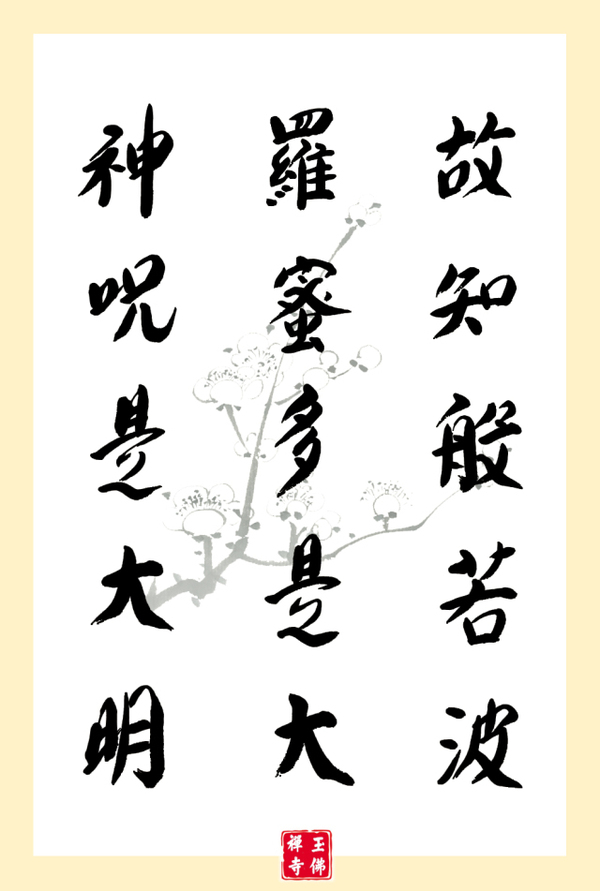 故知般若波
羅蜜多是大
神呪是大明
玉佛
禅寺